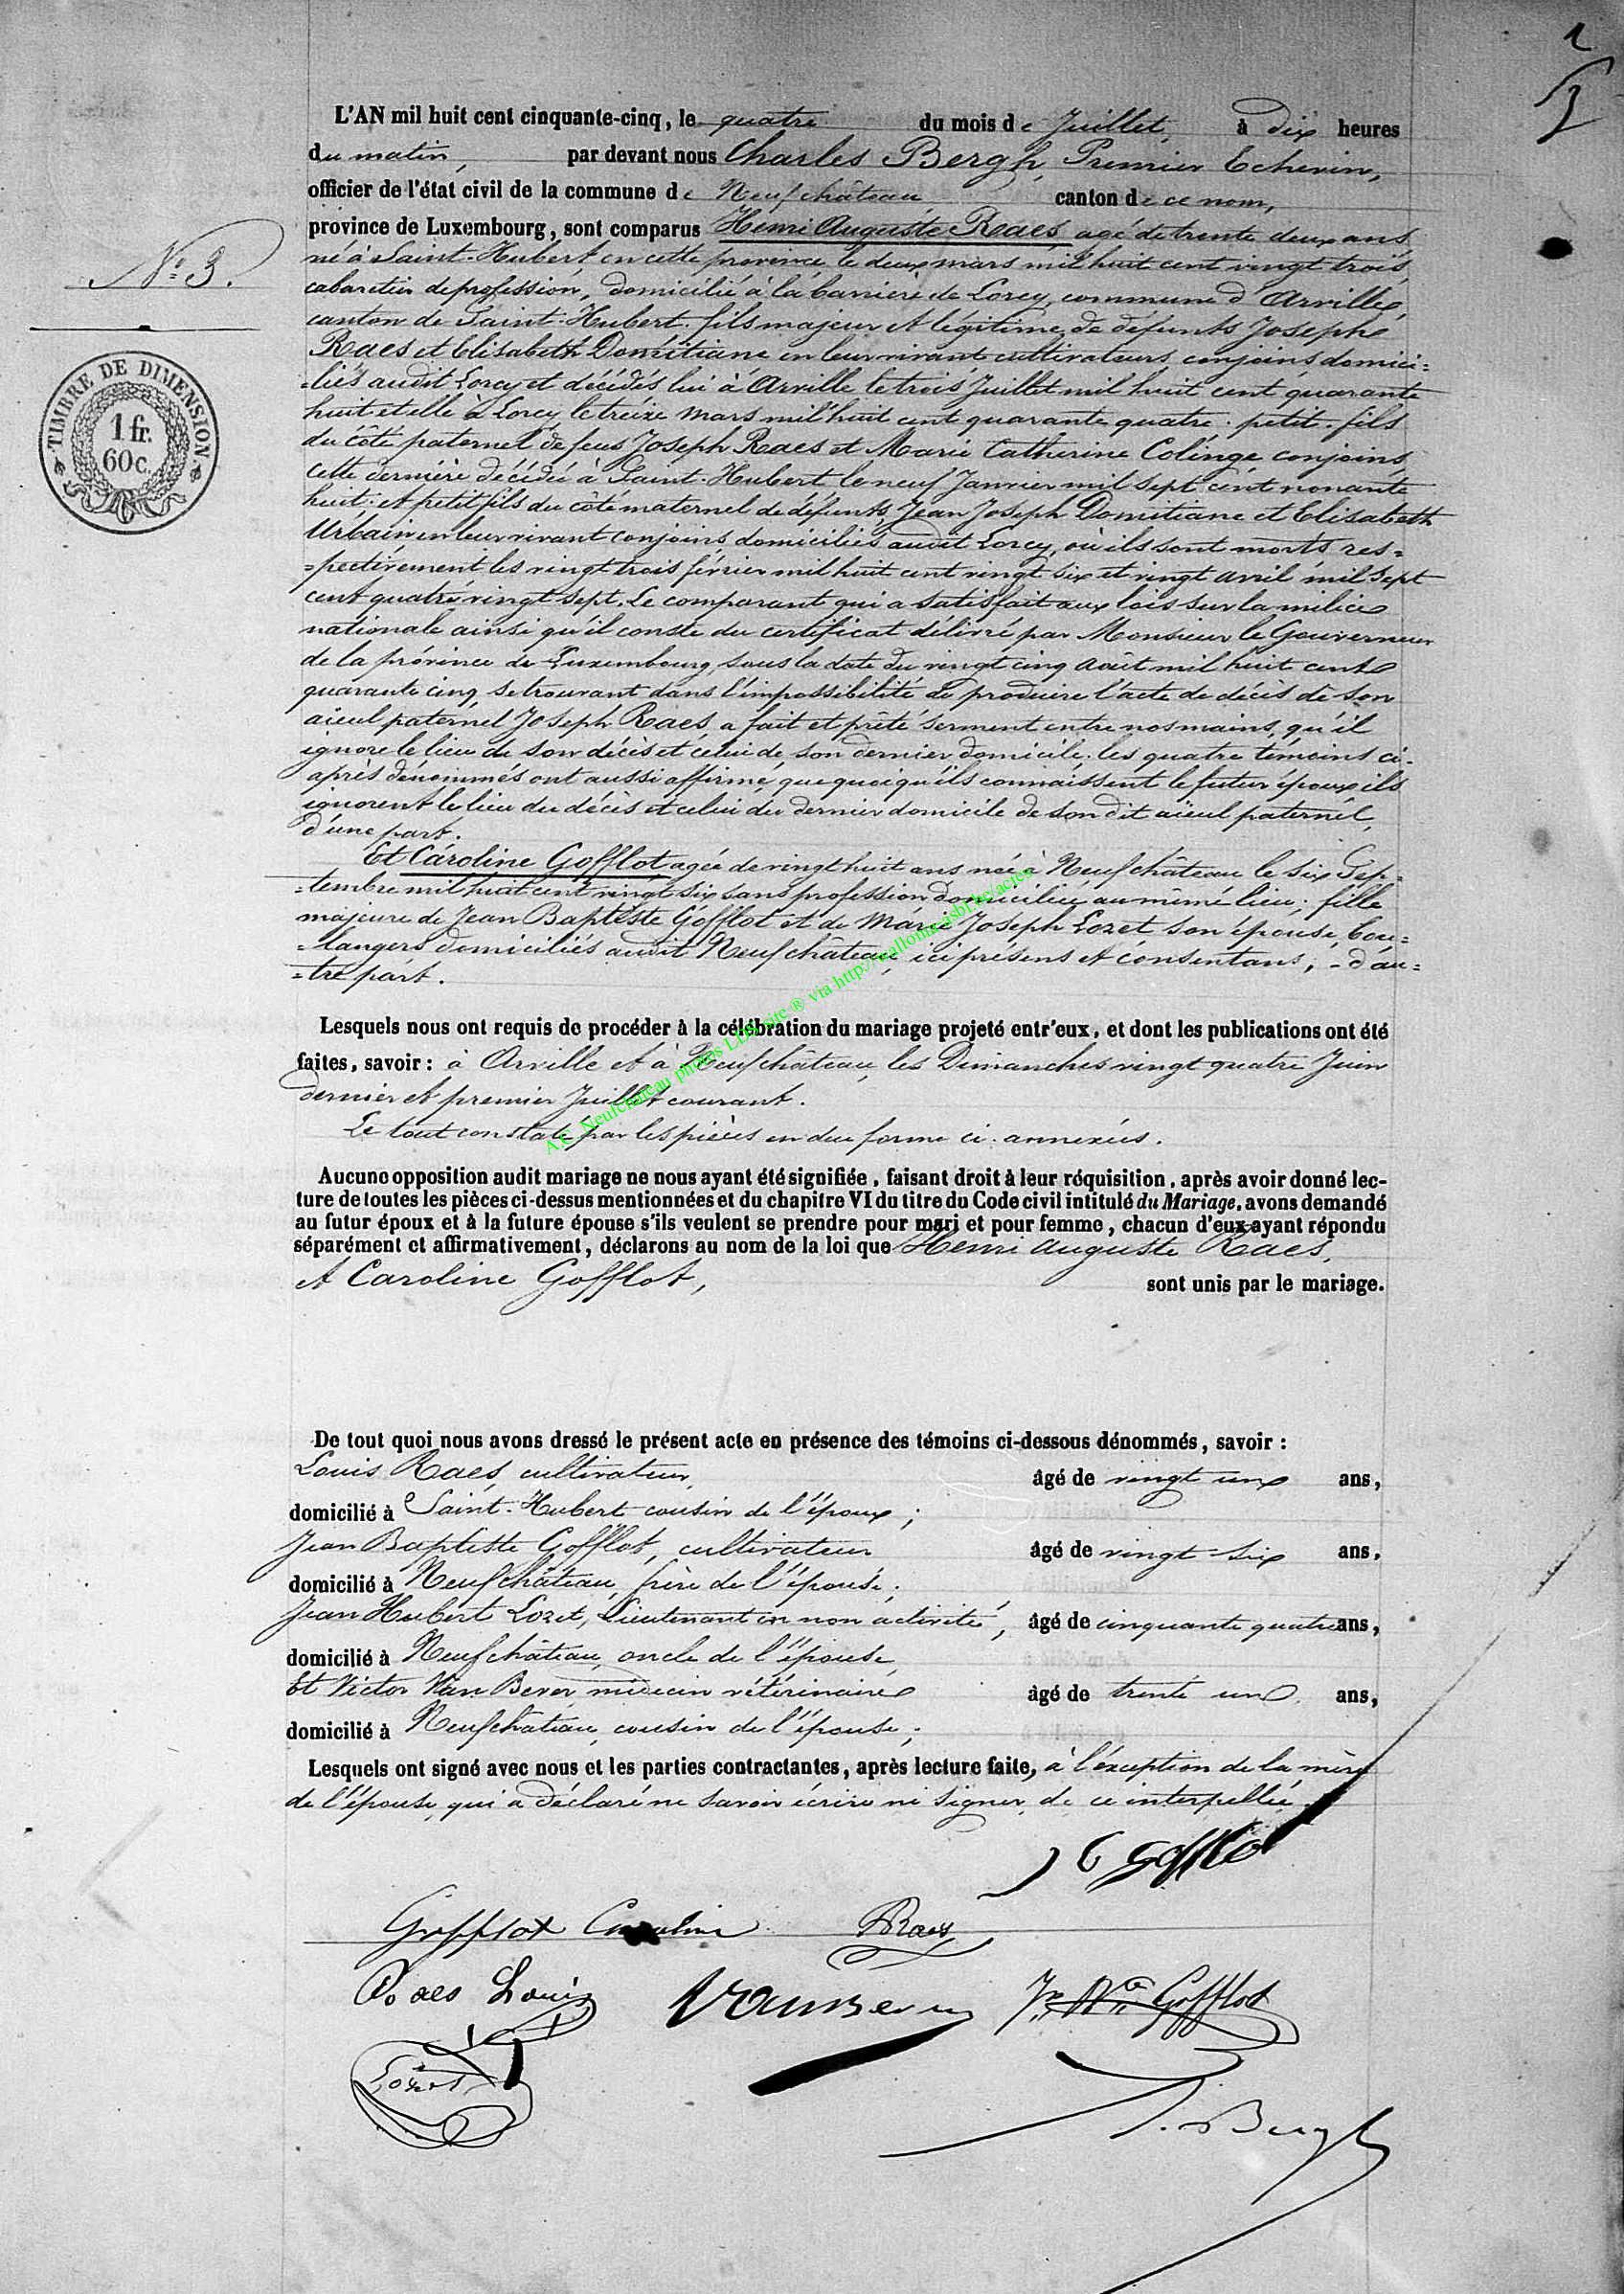 1
3
L'AN mil huit cent cinquante-cinq, le quatre du mois de Juillet, à dix heures
du matin, par devant nous Charles Bergh, Premier Echevin,
officier de l'état civil de la commune de Neufchâteau canton de ce nom,
province de Luxembourg, sont comparus Henri Auguste Raes agé de trente deux ans
N.º 3.
né à Saint-Hubert, en cette province le deux mars mil huit cent vingt trois,
cabaretier de profession, domicilié à la barrière de Lorcy, commune d'Arville,
canton de Saint-Hubert. fils majeur et légitime de défunts Joseph
Raes et Elisabeth Domitiane en leur vivant cultivateurs, conjoins, domici=
=liés audit Lorcy et décédés lui à Arville le trois Juillet mil huit cent quarante
huit et elle à Lorcy le treize mars mil huit cent quarante quatre. petit-fils
du côté paternel de feus Joseph Raes et Marie Catherine Colinge conjoins,
cette dernière décédée à Saint-Hubert le neuf Janvier mil sept cent nonante
huit. et petit fils du côté maternel de défunts, Jean Joseph Domitiane et Elisabeth
Urbain en leur vivant conjoins, domiciliés audit Lorcy, où ils sont morts res=
=pectivement les vingt trois février mil huit cent vingt six et vingt avril mil sept
cent quatre vingt sept. Le comparant qui a satisfait aux lois sur la milice
nationale ainsi qu'il conste du certificat délivré par Monsieur le Gouverneur
de la province de Luxembourg, sous la date du vingt cinq août mil huit cent
quarante cinq, se trouvant dans l'impossibilité de produire l'acte de décès de son
aïeul paternel Joseph Raes, a fait et prêté serment entre nos mains, qu'il
ignore le lieu de son décès et celui de son dernier domicile, les quatre témoins ci-
après dénommés ont aussi affirmé, que quoiqu'ils connaissent le futur époux ils
ignorent le lieu du décès et celui du dernier domicile de son dit aïeul paternel,
d'une part.
Et Caroline Gofflot agée de vingt huit ans née à Neufchâteau le six Sep=
=tembre mil huit cent vingt six sans profession domiciliée au même lieu; fille
majeure de Jean Baptiste Gofflot et de Marie Joseph Lozet son épouse, bou=
=langers domiciliés audit Neufchâteau, ici présens et consentans, - d'au=
=tre part.
Lesquels nous ont requis de procéder à la célébration du mariage projeté entr'eux, et dont les publications ont été
faites, savoir : à Arville et à Neufchâteau, les Dimanches vingt quatre Juin
dernier et premier Juillet courant.
Le tout constaté par les pièces en due forme ci-annexées.
Aucune opposition audit mariage ne nous ayant été signifiée, faisant droit à leur réquisition, après avoir donné lec-
ture de toutes les pièces ci-dessus mentionnées et du chapitre VI du titre du Code civil intitulé du Mariage, avons demandé
au futur époux et à la future épouse s'ils veulent se prendre pour mari et pour femme, chacun d'eux ayant répondu
séparément et affirmativement, déclarons au nom de la loi que Henri Auguste Raes,
et Caroline Gofflot, sont unis par le mariage.
De tout quoi nous avons dressé le présent acte en présence des témoins ci-dessous dénommés, savoir :
Louis Raes, cultivateur, âgé de vingt un ans,
domicilié à Saint-Hubert cousin de l'époux ;
Jean Baptiste Gofflot, cultivateur âgé de vingt six ans,
domicilié à Neufchâteau, frère de l'épouse ;
Jean Hubert Lozet, Lieutenant en non activité, âgé de cinquante quatre ans,
domicilié à Neufchâteau, oncle de l'épouse,
Et Victor Van Bever médecin vétérinaire âgé de trente un ans,
domicilié à Neufchâteau, cousin de l'épouse ;
Lesquels ont signé avec nous et les parties contractantes, après lecture faite, à l'exception de la mère
de l'épouse, qui a déclaré ne savoir écrire ni signer, de ce interpellée.
Gofflot
Gofflot Caroline Raes
Raes Louis Vanbever Gofflot
Lozet
Bergh
TIMBRE DE DIMENSION
1 fr.
60 c.